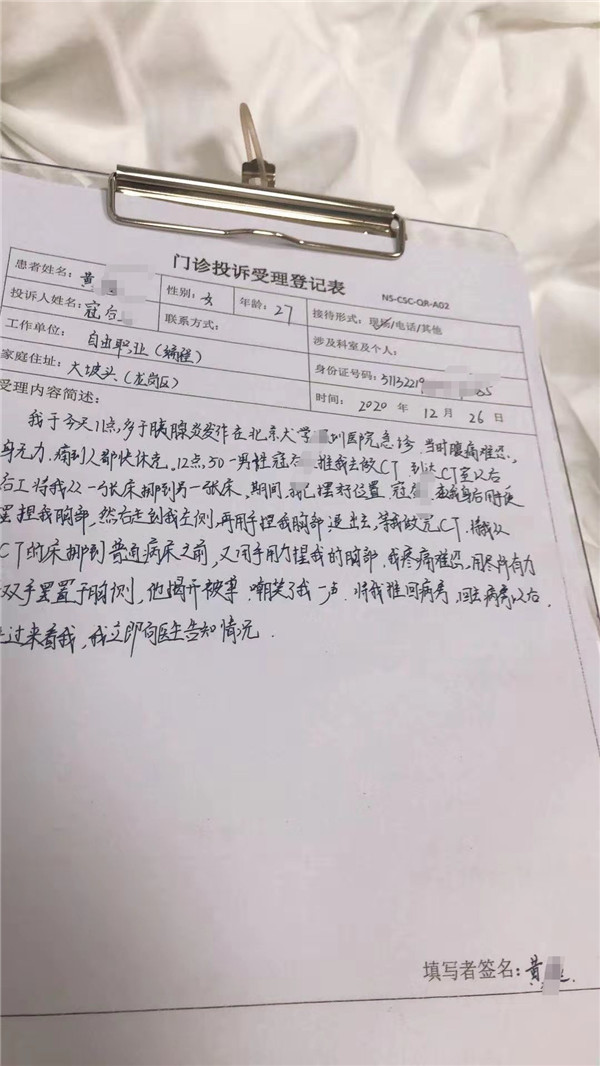 门诊投诉受理登记表
NS-CSC-QR-A02
患者姓名: 黄 性别: 女 年龄: 27 接待形式: 现场/电话/其他
投诉人姓名: 寇右 联系方式: 涉及科室及个人:
工作单位: 自由职业(编程) 身份证号码: 51132219 85
家庭住址: 大坡头(龙岗区) 时间: 2020 年 12 月 26 日
受理内容简述:
我于今天11点,多于胰腺炎发作在北京大学 圳医院急诊.当时腹痛难忍,
身无力.痛到人都快休克,12点,50一男性寇右 推我去做CT.到达CT室以后
右工将我从一张床挪到另一张床,期间 我已摆好位置.寇 在我身后用手
捏我胸部,然后走到我左侧,再用手捏我胸部,退出去,等我做完CT.将我从
CT的床挪到普通病床之前,又用手用力捏我的胸部,我疼痛难忍,用尽所有力
双手置于胸侧,他揭开被单 嘲笑了我一声.将我推回病房,回去病房以后,
过来看我,我立即向医生告知情况.
填写者签名: 黄